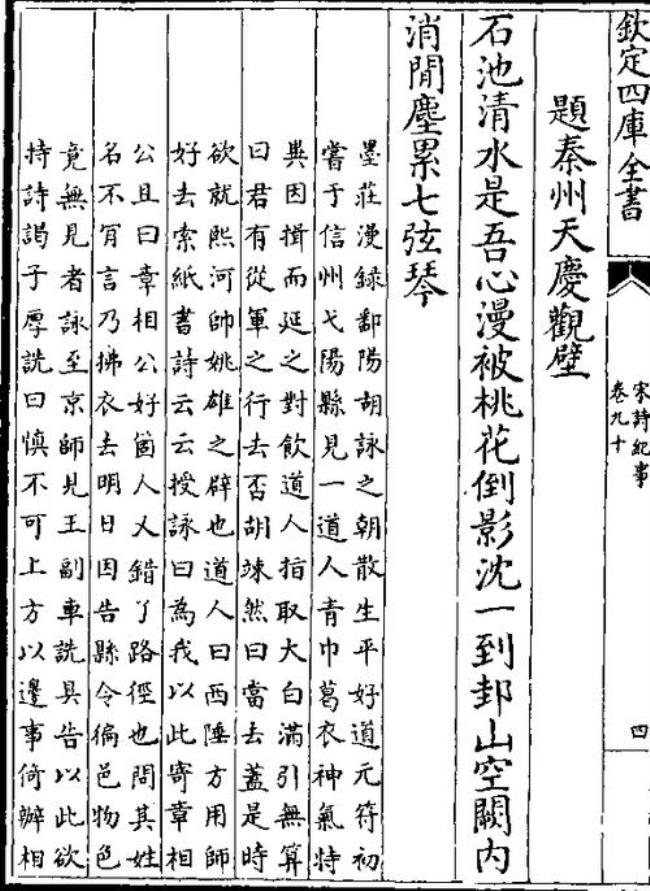 欽定四庫全書
宋詩紀事
卷九十
四
題秦州天慶觀壁
石池清水是吾心漫被桃花倒影沈一到邽山空闕内
消閒塵累七弦琴
墨莊漫録鄱陽胡詠之朝散生平好道元符初
嘗于信州弋陽縣見一道人青巾葛衣神氣特
異因揖而延之對飲道人指取大白滿引無算
曰君有從軍之行去否胡竦然曰當去蓋是時
欲就熙河帥姚雄之辟也道人曰西陲方用師
好去索紙書詩云云授詠曰為我以此寄章相
公且曰章相公好箇人又錯了路徑也問其姓
名不肎言乃拂衣去明日因告縣令徧邑物色
竟無見者詠至京師見王副車詵具告以此欲
持詩謁子厚詵曰慎不可上方以邊事倚辦相